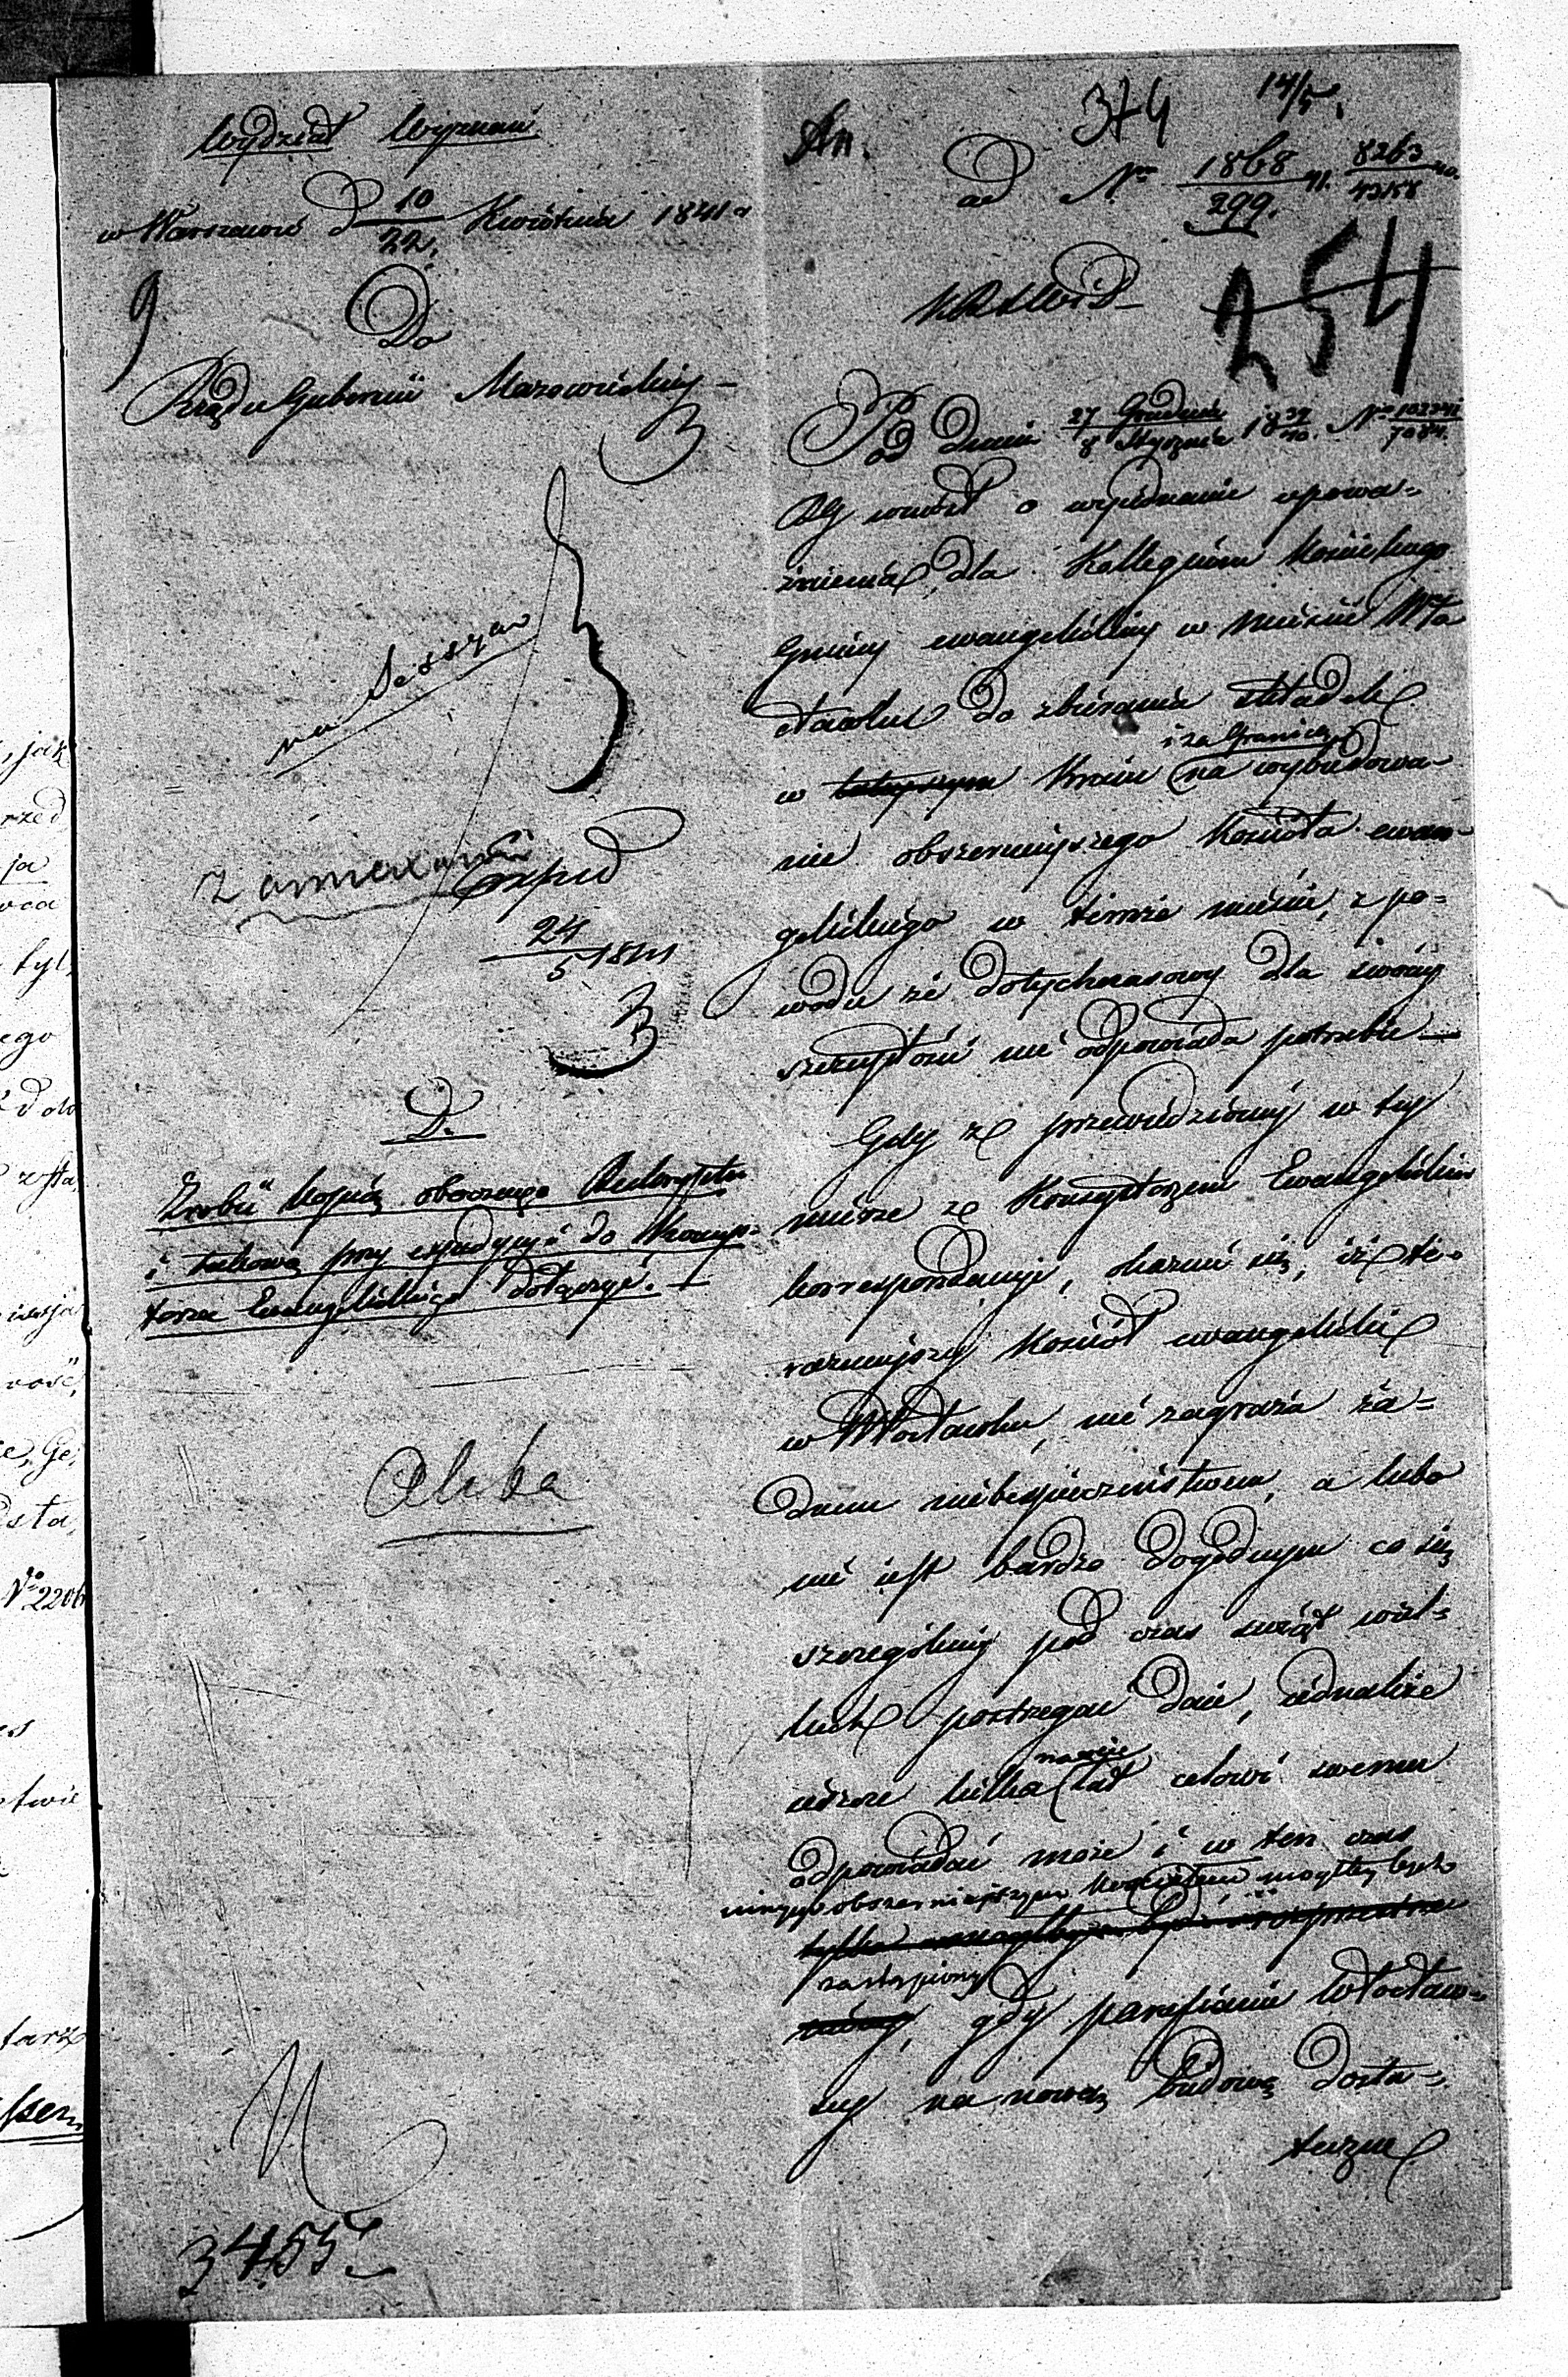 Wydział Wyznań
w Warszawie d 10/22 Kwietnia 1841 r
9
Do
Rządu Gubernii Mazowieckiej
na Sessyą
z annexami
Exped
24/5 1841
D.
Zrobić kopią obocznego Reskryptu
i takową przy expedycyi do Konsys=
torza Ewangelickiego dołączyć.
3455
374 14/5.
ad Nro 1868/299. 41. 8263/
254
Pod dniem 27 Grudnia/8 Stycznia 18 39/40. Nro
RG wniósł o wyiednanie upowa=
żnienia, dla Kollegium Kościelnego
Gminy ewangelickiej w mieście Wło
cławku do zbierania składek
w tutejszym Kraiu i za Granicą na wybudowa-
nie obszerniejszego Kościoła ewan-
gelickiego w temże mieście, z po=
wodu że dotychczasowy dla swoiey
szczupłości nie odpowiada potrzebie —
Gdy z przewiedzioney w tey
mierze z Konsystorzem Ewangelickim
korrespondencyi, okazuie się, iż te-
raznieyszy Kościół ewangelicki
w Włocławku, nie zagraża ża=
dnem niebezpieczeństwem, a lubo
nie iest bardzo dogodnym co się
szczególniey pod czas świąt wiel=
kich postrzegać daie, iednakże
ieszcze kilka naście lat celowi swemu
odpowiadać może i w ten czas
innym obszernieyszym Kościołem mógłby być
zastąpiony, gdy parafianie Włocław=
scy na nową budowę dosta=
teczne